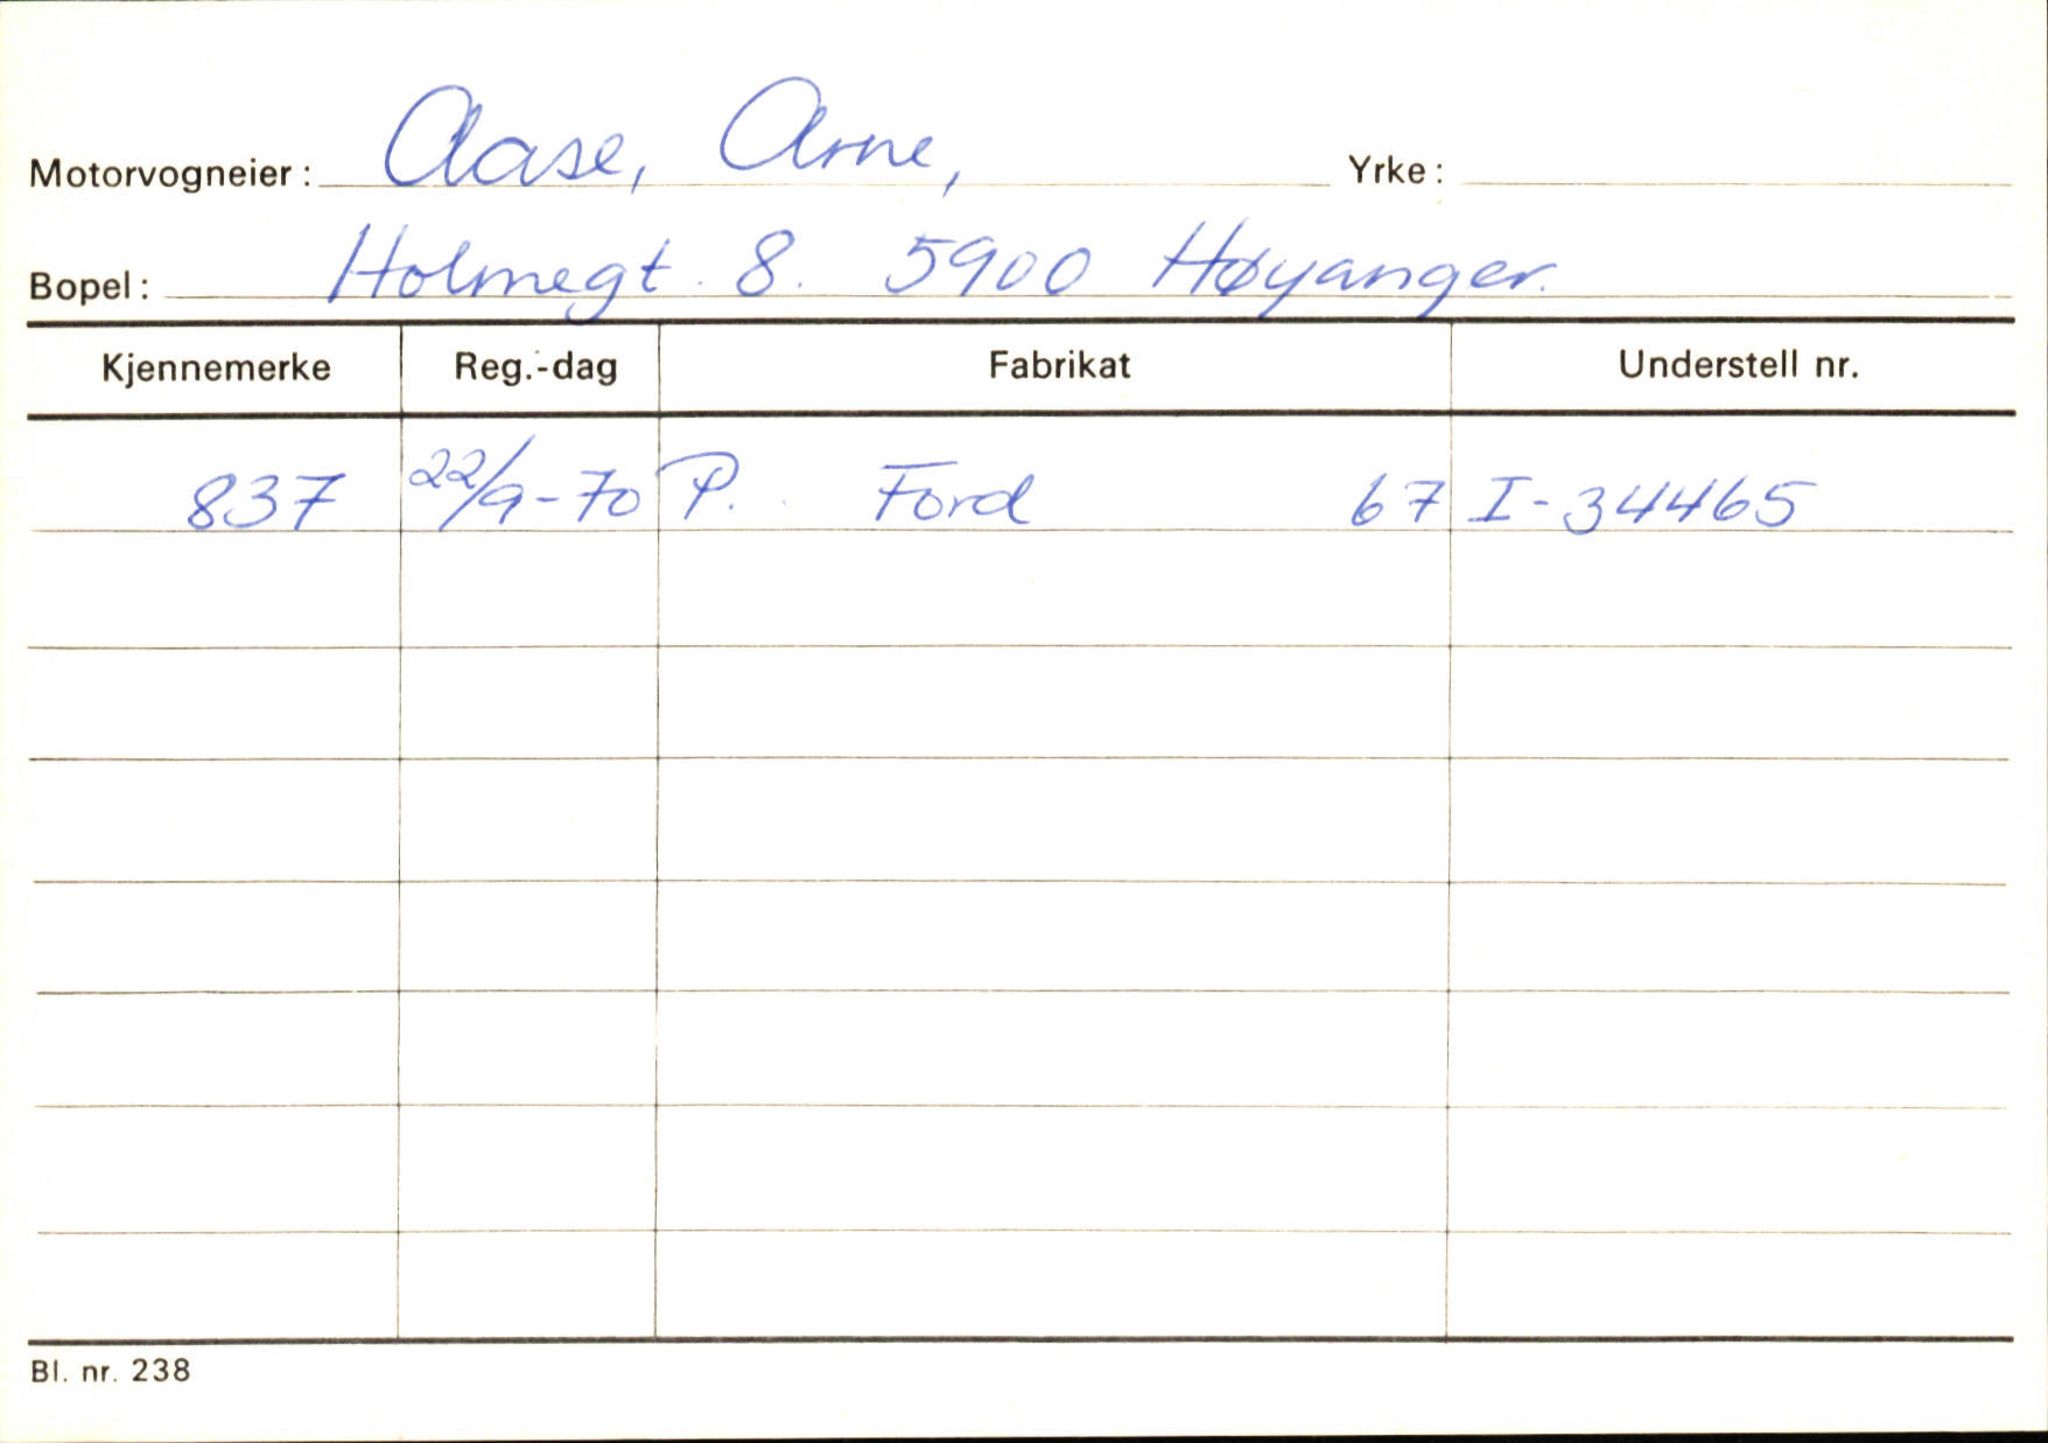 Motorvogneier: Aase, Arne, Yrke:
Bopel: Holmegt. 8. 5900 Høyanger.
Kjennemerke Reg.-dag Fabrikat Understell nr.
837 22/9-70 P. Ford 67 I-34465
Bl. nr. 238